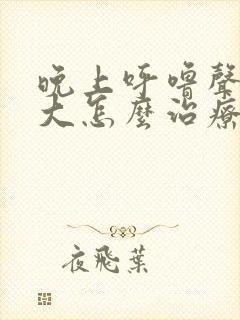 晚上呼嚕聲
大怎麼治療
夜飛葉